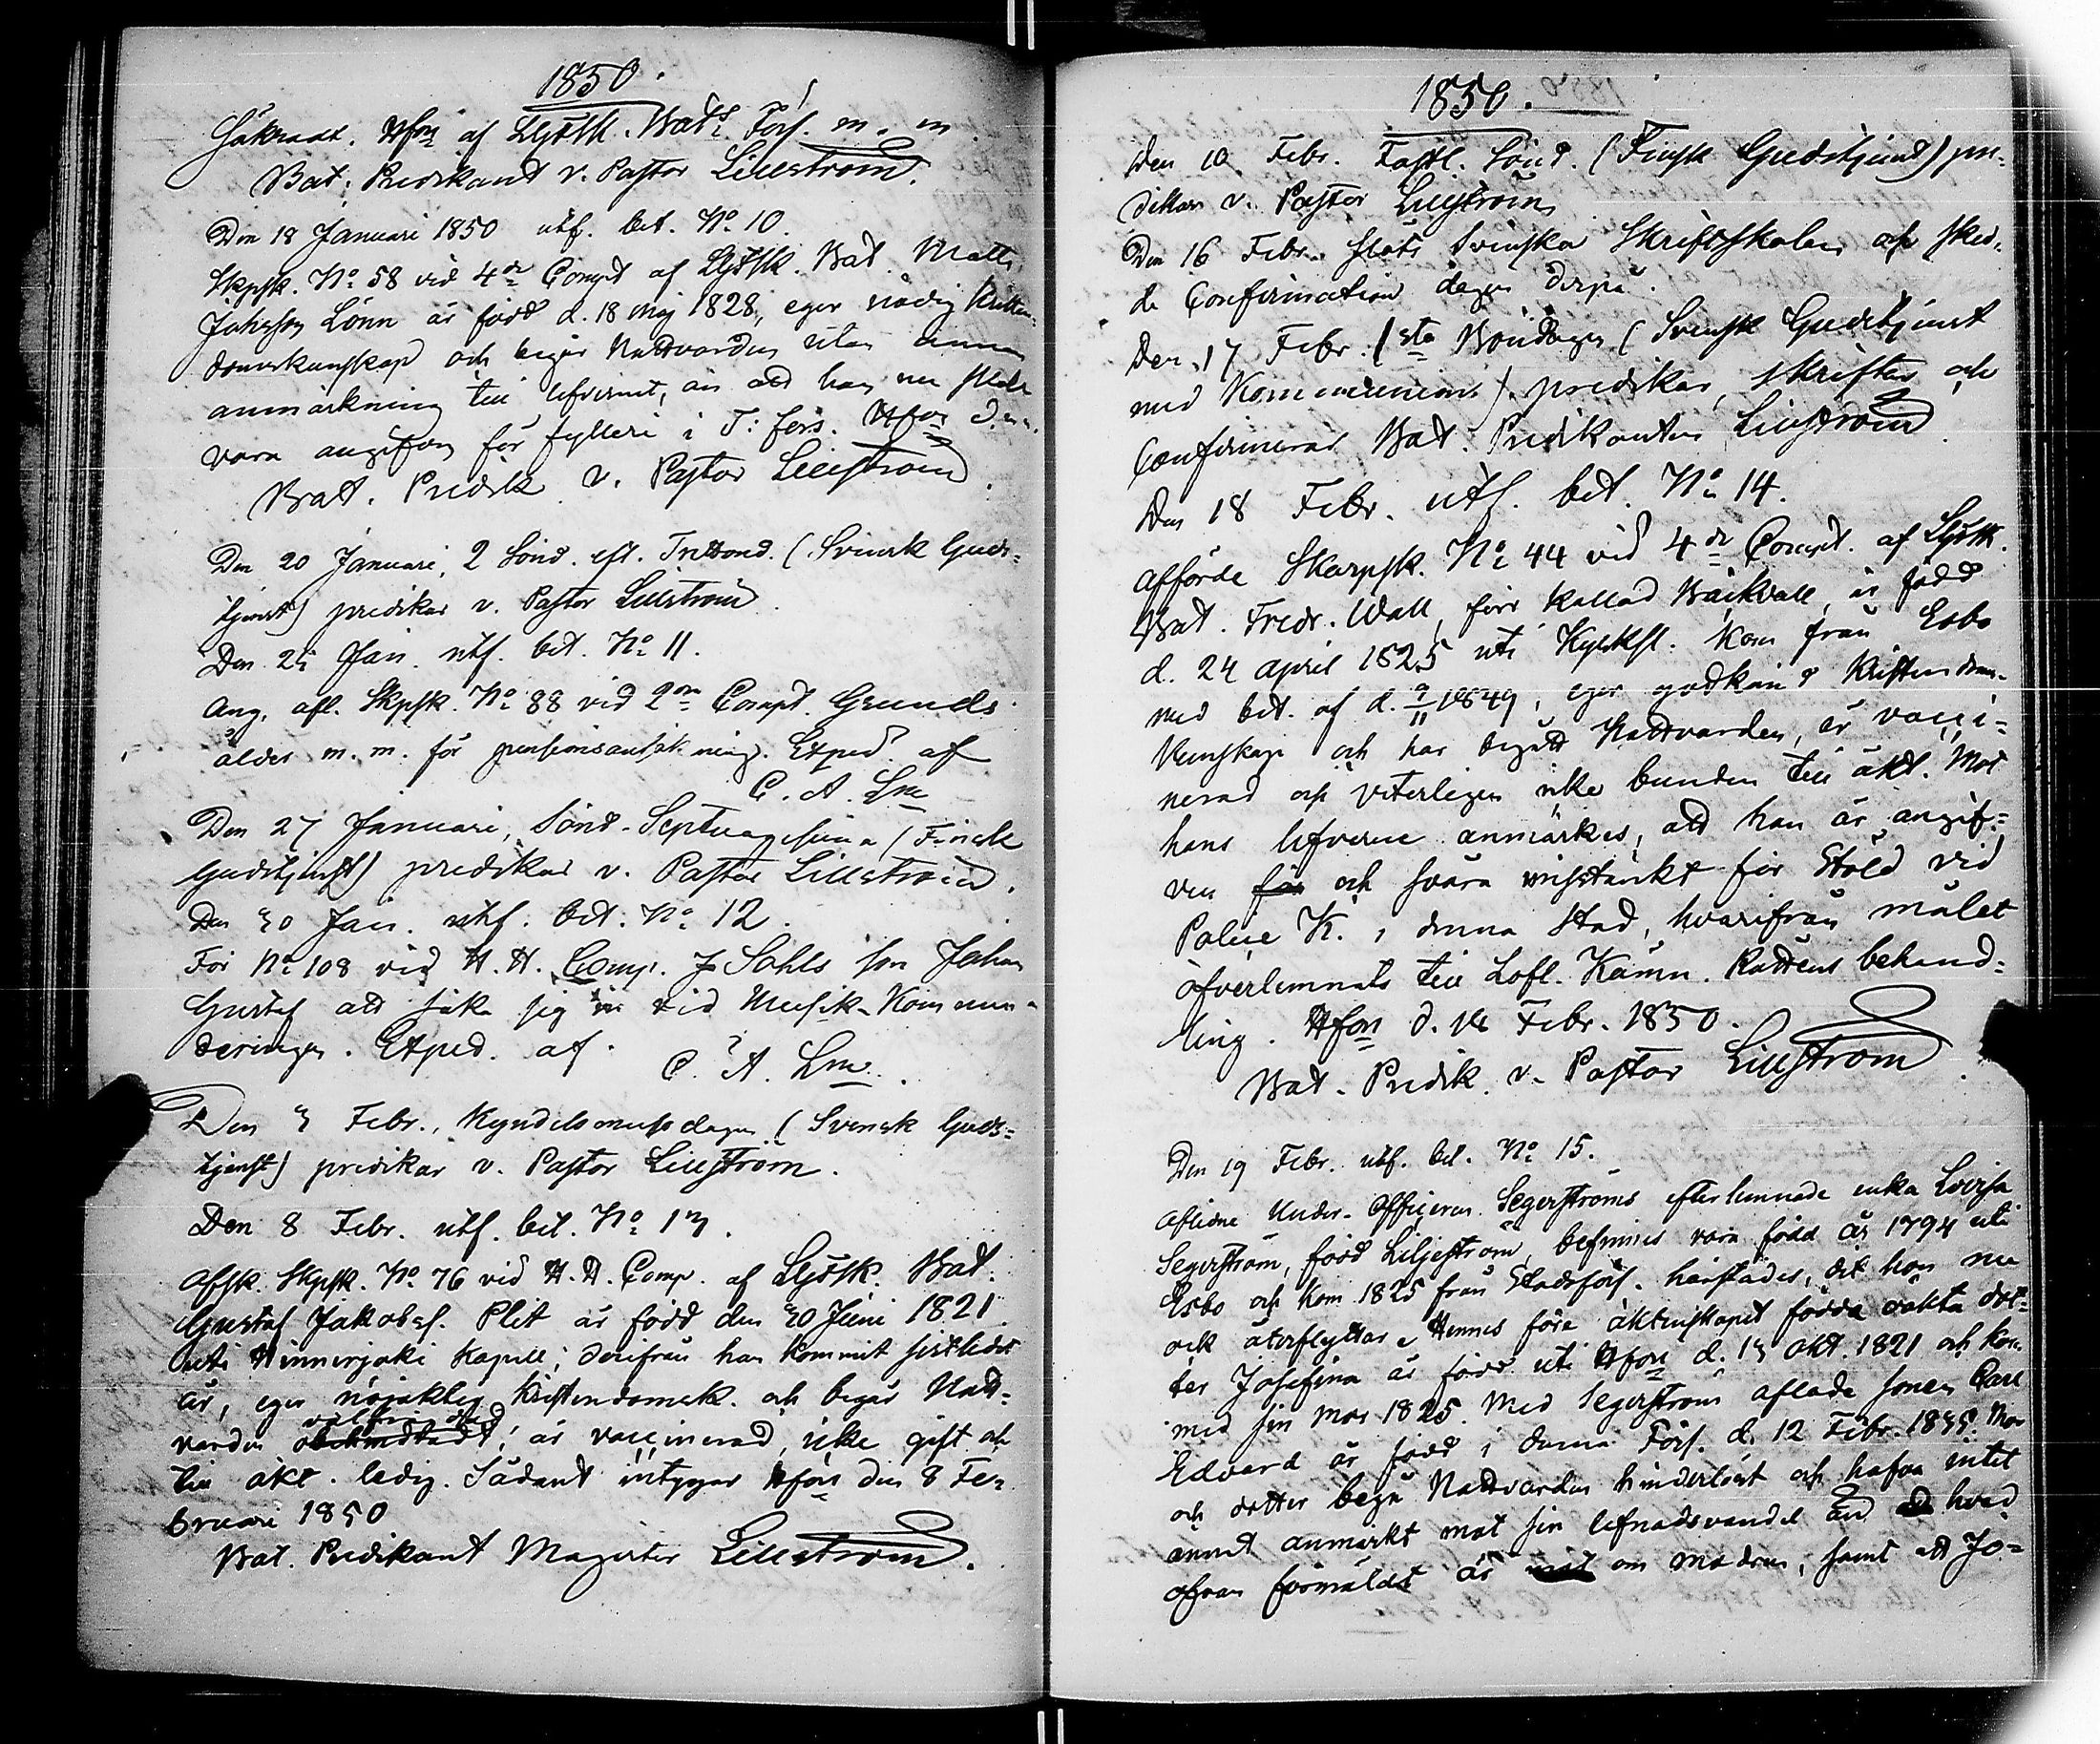 1850.
säknadt. Hfors af LGjöSk. Batns Förs. m. m.
Bat: Predikant v. Pastor Lillström.
Den 18 Januari 1850 utf. bet. No 10.
Skpsk. No 58 vid 4de Compt af LfjSk. Bat. Matts
Johansson Lönn är född d. 18 maj 1828, eger nödig Kristen-
domskunskap och begår Nattvarden utan annan
anmärkning till lefvernet, än att han nu skall
vara angifven för fylleri i T: förs. Hfors d.u.s.
Batt. Predik v. Pastor Lillström.
Den 20 Januari, 2 Sönd. eft. Trettond. (Svensk Guds-
tjenst) predikar v. Pastor Lillström
Den 25 Jan. utf. bet. No 11.
Ang. afl. Skpsk. No 88 vid 2dra Compt. Grunds
ålder m. m. för pensionsansökning. Exped. af
C. A. Lm
Den 27 Januari, Sönd. Septuagesima (Finsk
Gudstjenst) predikar v. Pastor Lillström.
Den 30 Jan. utf. bet. No 12.
För No 108 vid H. H. Comp. J Sohls son Johan
Gustaf att söka sig in vid Musik-Kommen-
deringen. Exped. af
C. A. Lm.
Den 3 Febr., Kyndelsmessodagen (Svensk Guds-
tjenst) predikar v. Pastor Lillström.
Den 8 Febr. utf. bet. No 13.
Afsk. Skpsk. No 76 vid H. H. Comp. af LfjSk. Bat.
Gustaf Jakobss. Plit är född den 30 Juni 1821
uti Hinnerjoki Kapell; derifrån han kommit sistledet
år, eger nöjaktig Kristendomsk. och begår Natt-
varden obehindradt; är vaccinerad, icke gift och
till äkt. ledig. Sådant intygar Hfors den 8 Fe-
bruari 1850
Bat. Predikant Magister Lillström.
1850.
Den 10 Febr. Fastl. Sönd. (Finsk Gudstjenst) pre-
dikar v. Pastor Lillström
Den 16 Febr. slöts Svenska Skriftskolan och sked-
de Confirmation dagen derpå.
Den 17 Febr. 1sta Böndagen (Svensk Gudstjenst
med Kommunion) predikar, skriftar och
Confirmerar Bat. Predikanten Lillström
Den 18 Febr. utf. bet. No 14.
Afförde Skarpsk. No 44 vid 4de Compt. af LfjSk.
Bat. Fredr. Wall, förr kallad Bäckvall, är född
d. 24 april 1825 uti Kyrksl. kom från Esbo
med bet. af d. 9/11 1849, eger godkänd Kristendoms-
kunskap och har begått Nattvarden, är vacci-
nerad och veterligen icke bunden till äkt. Mot
hans lefverne anmärkes, att han är angif-
ven för och svåra misstänkt för stöld vid
Police K. i denna stad, hvarifrån målet
öfverlemnats till Lofl. Kämn. Rättens behand-
ling. Hfors d. 18 Febr. 1850.
Bat. Predik. v. Pastor Lillström
Den 19 Febr. utf. bet. No 15.
Aflidne Under-Officeren Segerströms efterlemnade enka Lovisa
Segerström, född Liljeström, befinnes vara född år 1794 uti
Esbo och kom 1825 från Stadsförs. härstädes, dit hon nu
ock återflyttar. Hennes före äktenskapet födda oäkta dot-
ter Josefina är född uti Hfors d. 13 Okt. 1821 och kom
med sin mor 1825. Med Segerström aflade sonen Carl
Edvard är född i denna Förs. d. 12 Febr. 1835. Mor
och dotter begå Nattvarden hinderlöst och hafva intet
annat anmärkt mot sin lefnadsvandel än hvad
ofvan förmäldt är om modren, samt att Jo-